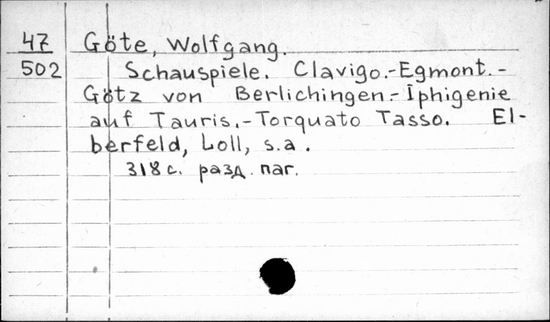 47 Göte, Wolfgang.
502 Schauspiele. Clavigo.-Egmont.-
Götz von Berlichingen.-Iphigenie
auf Tauris.-Torquato Tasso. El-
berfeld, Loll, s.a.
318 с. разд. паг.